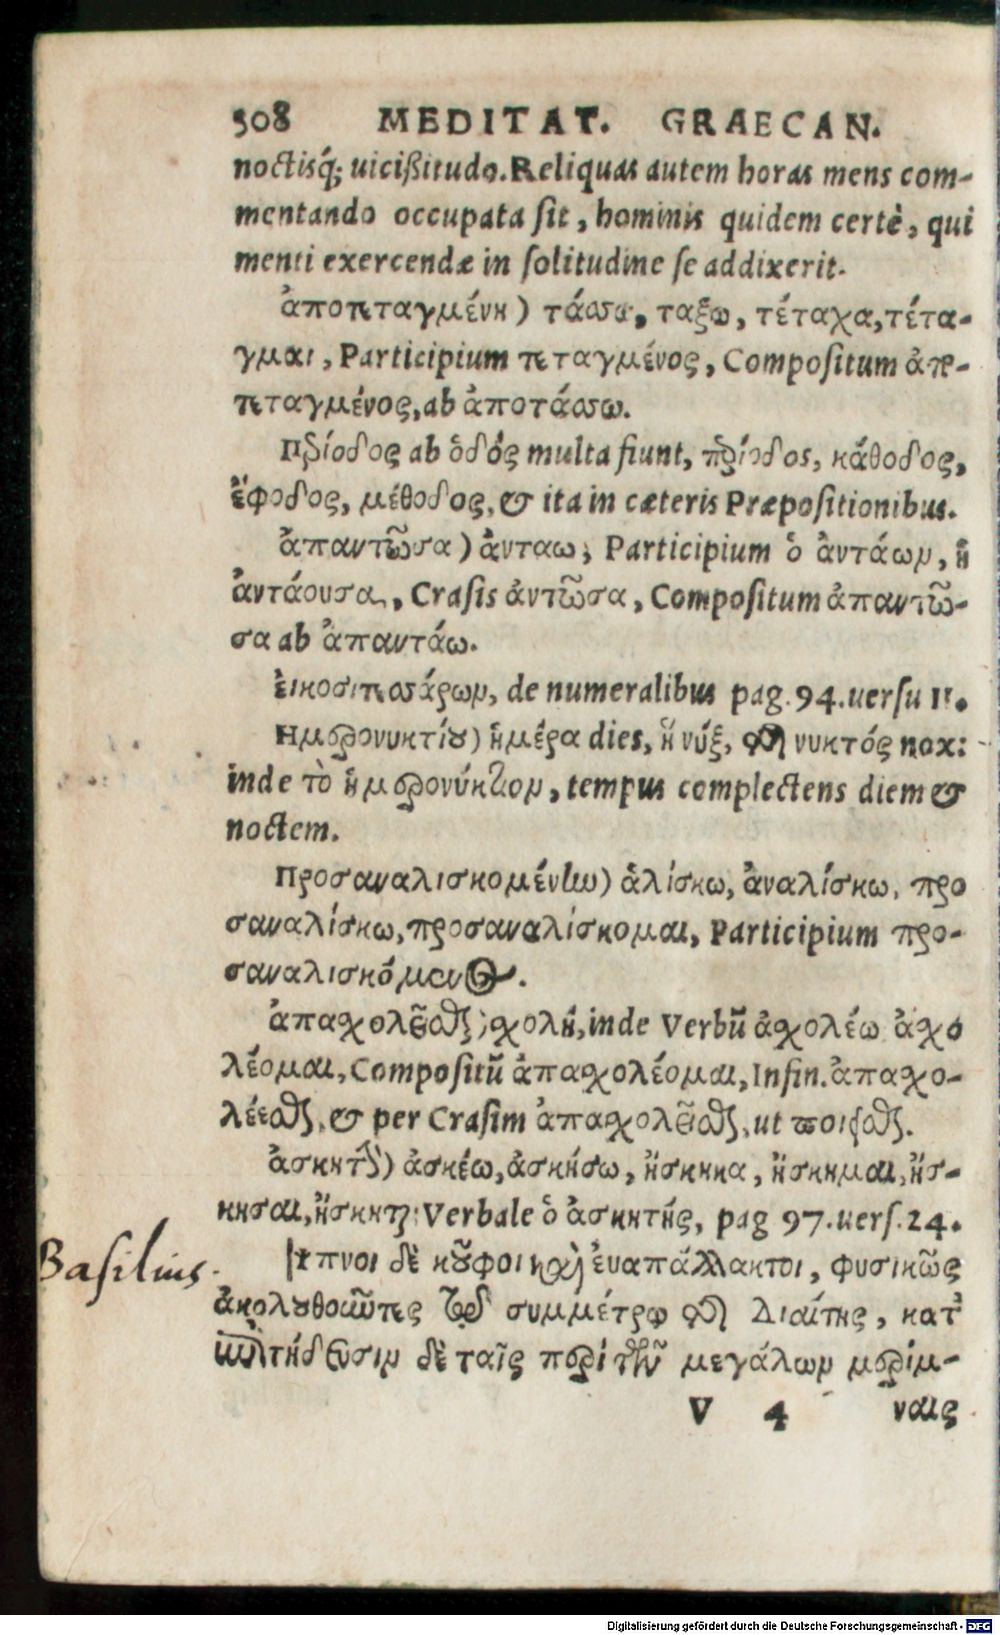 308 MEDITAT. GRAECAN.
noctisq́; uicißitudo. Reliquas autem horas mens com-
mentando occupata sit, hominis quidem certè, qui
menti exercendæ in solitudine se addixerit.
ἀποτεταγμένη) τάσσω, ταξω, τέταχα, τέτα-
γμαι, Participium τεταγμένος, Compositum ἀπο-
τεταγμένος, ab ἀποτάσσω.
Περίοδος ab ὁδός multa fiunt, περίοδος, κάθοδος,
ἔφοδος, μέθοδος, & ita in cæteris Præpositionibus.
ἀπαντῶσα) ἀνταω, Participium ὁ ἀντάων, ἡ
ἀντάουσα, Crasis ἀντῶσα, Compositum ἀπαντῶ-
σα ab ἀπαντάω.
ἐικοσιτεσσάρων, de numeralibus pag. 94. uersu 11.
Ημερονυκτίου) ἡμέρα dies, ἡ νύξ, τῆς νυκτός nox:
inde τὸ ἡμερονύκτιον, tempus complectens diem &
noctem.
Προσαναλισκομένων) ἁλίσκω, ἀναλίσκω, προ
σαναλίσκω, προσαναλίσκομαι, Participium προ-
σαναλισκόμενος.
ἀπασχολεῖσθαι) σχολή, inde Verbũ ἀσχολέω ἀσχο
λέομαι, Compositũ ἀπασχολέομαι, Infin. ἀπασχο-
λέεσθαι, & per Crasim ἀπασχολεῖσθαι, ut ποιεῖσθαι.
ἀσκητῇ) ἀσκέω, ἀσκήσω, ἤσκηκα, ἤσκημαι, ἤσ-
κησαι, ἤσκηται: Verbale ὁ ἀσκητής, pag 97. uers. 24.
Basilius.
Ὕπνοι δὲ κοῦφοι καὶ ἐυαπάλλακτοι, φυσικῶς
ἀκολουθοῦντες τῷ συμμέτρῳ τῆς Διαίτης, κατ'
ἐπιτήδευσιν δὲ ταῖς περὶ τῶν μεγάλων μερίμ-
V 4 ναις
Digitalisierung gefördert durch die Deutsche Forschungsgemeinschaft - DFG